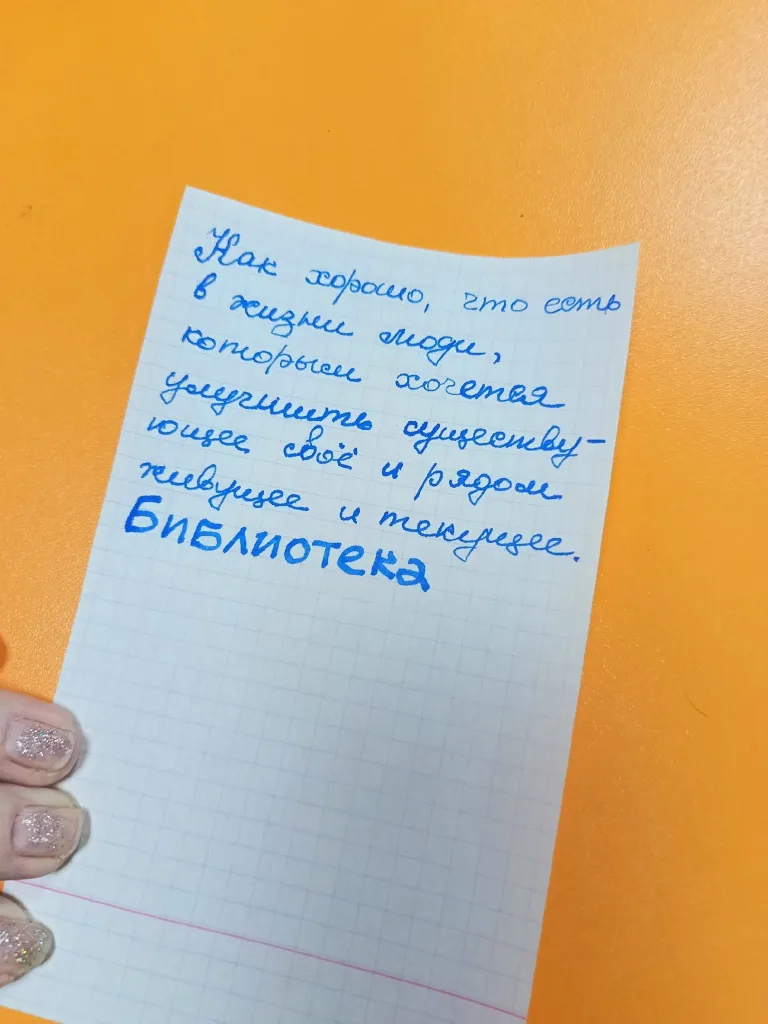 Как хорошо, что есть
в жизни люди,
которым хочется
улучшить существу-
ющее своё и рядом
живущее и текущее.
БИБЛИОТЕКА